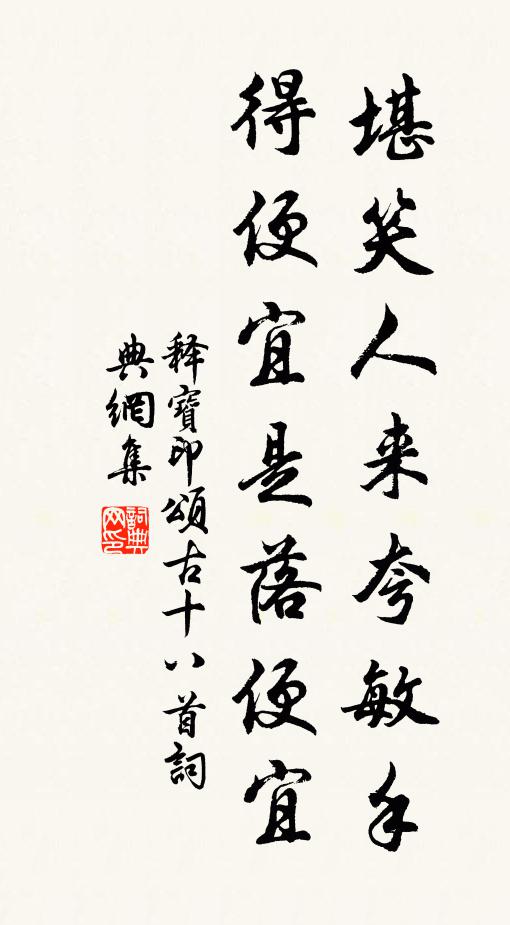 堪笑人来夸敏手
得便宜是落便宜
释寶印頌古十八首詞
典網集
詞典
网印